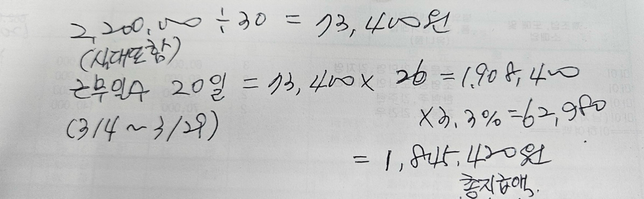 2,200,000 ÷ 30 = 73,400원
(식대포함)
근무일수 20일 = 73,400 x 26 = 1,908,400
(3/4 ~ 3/29)
x 3.3% = 62,980
= 1,845,420원
총지급액.